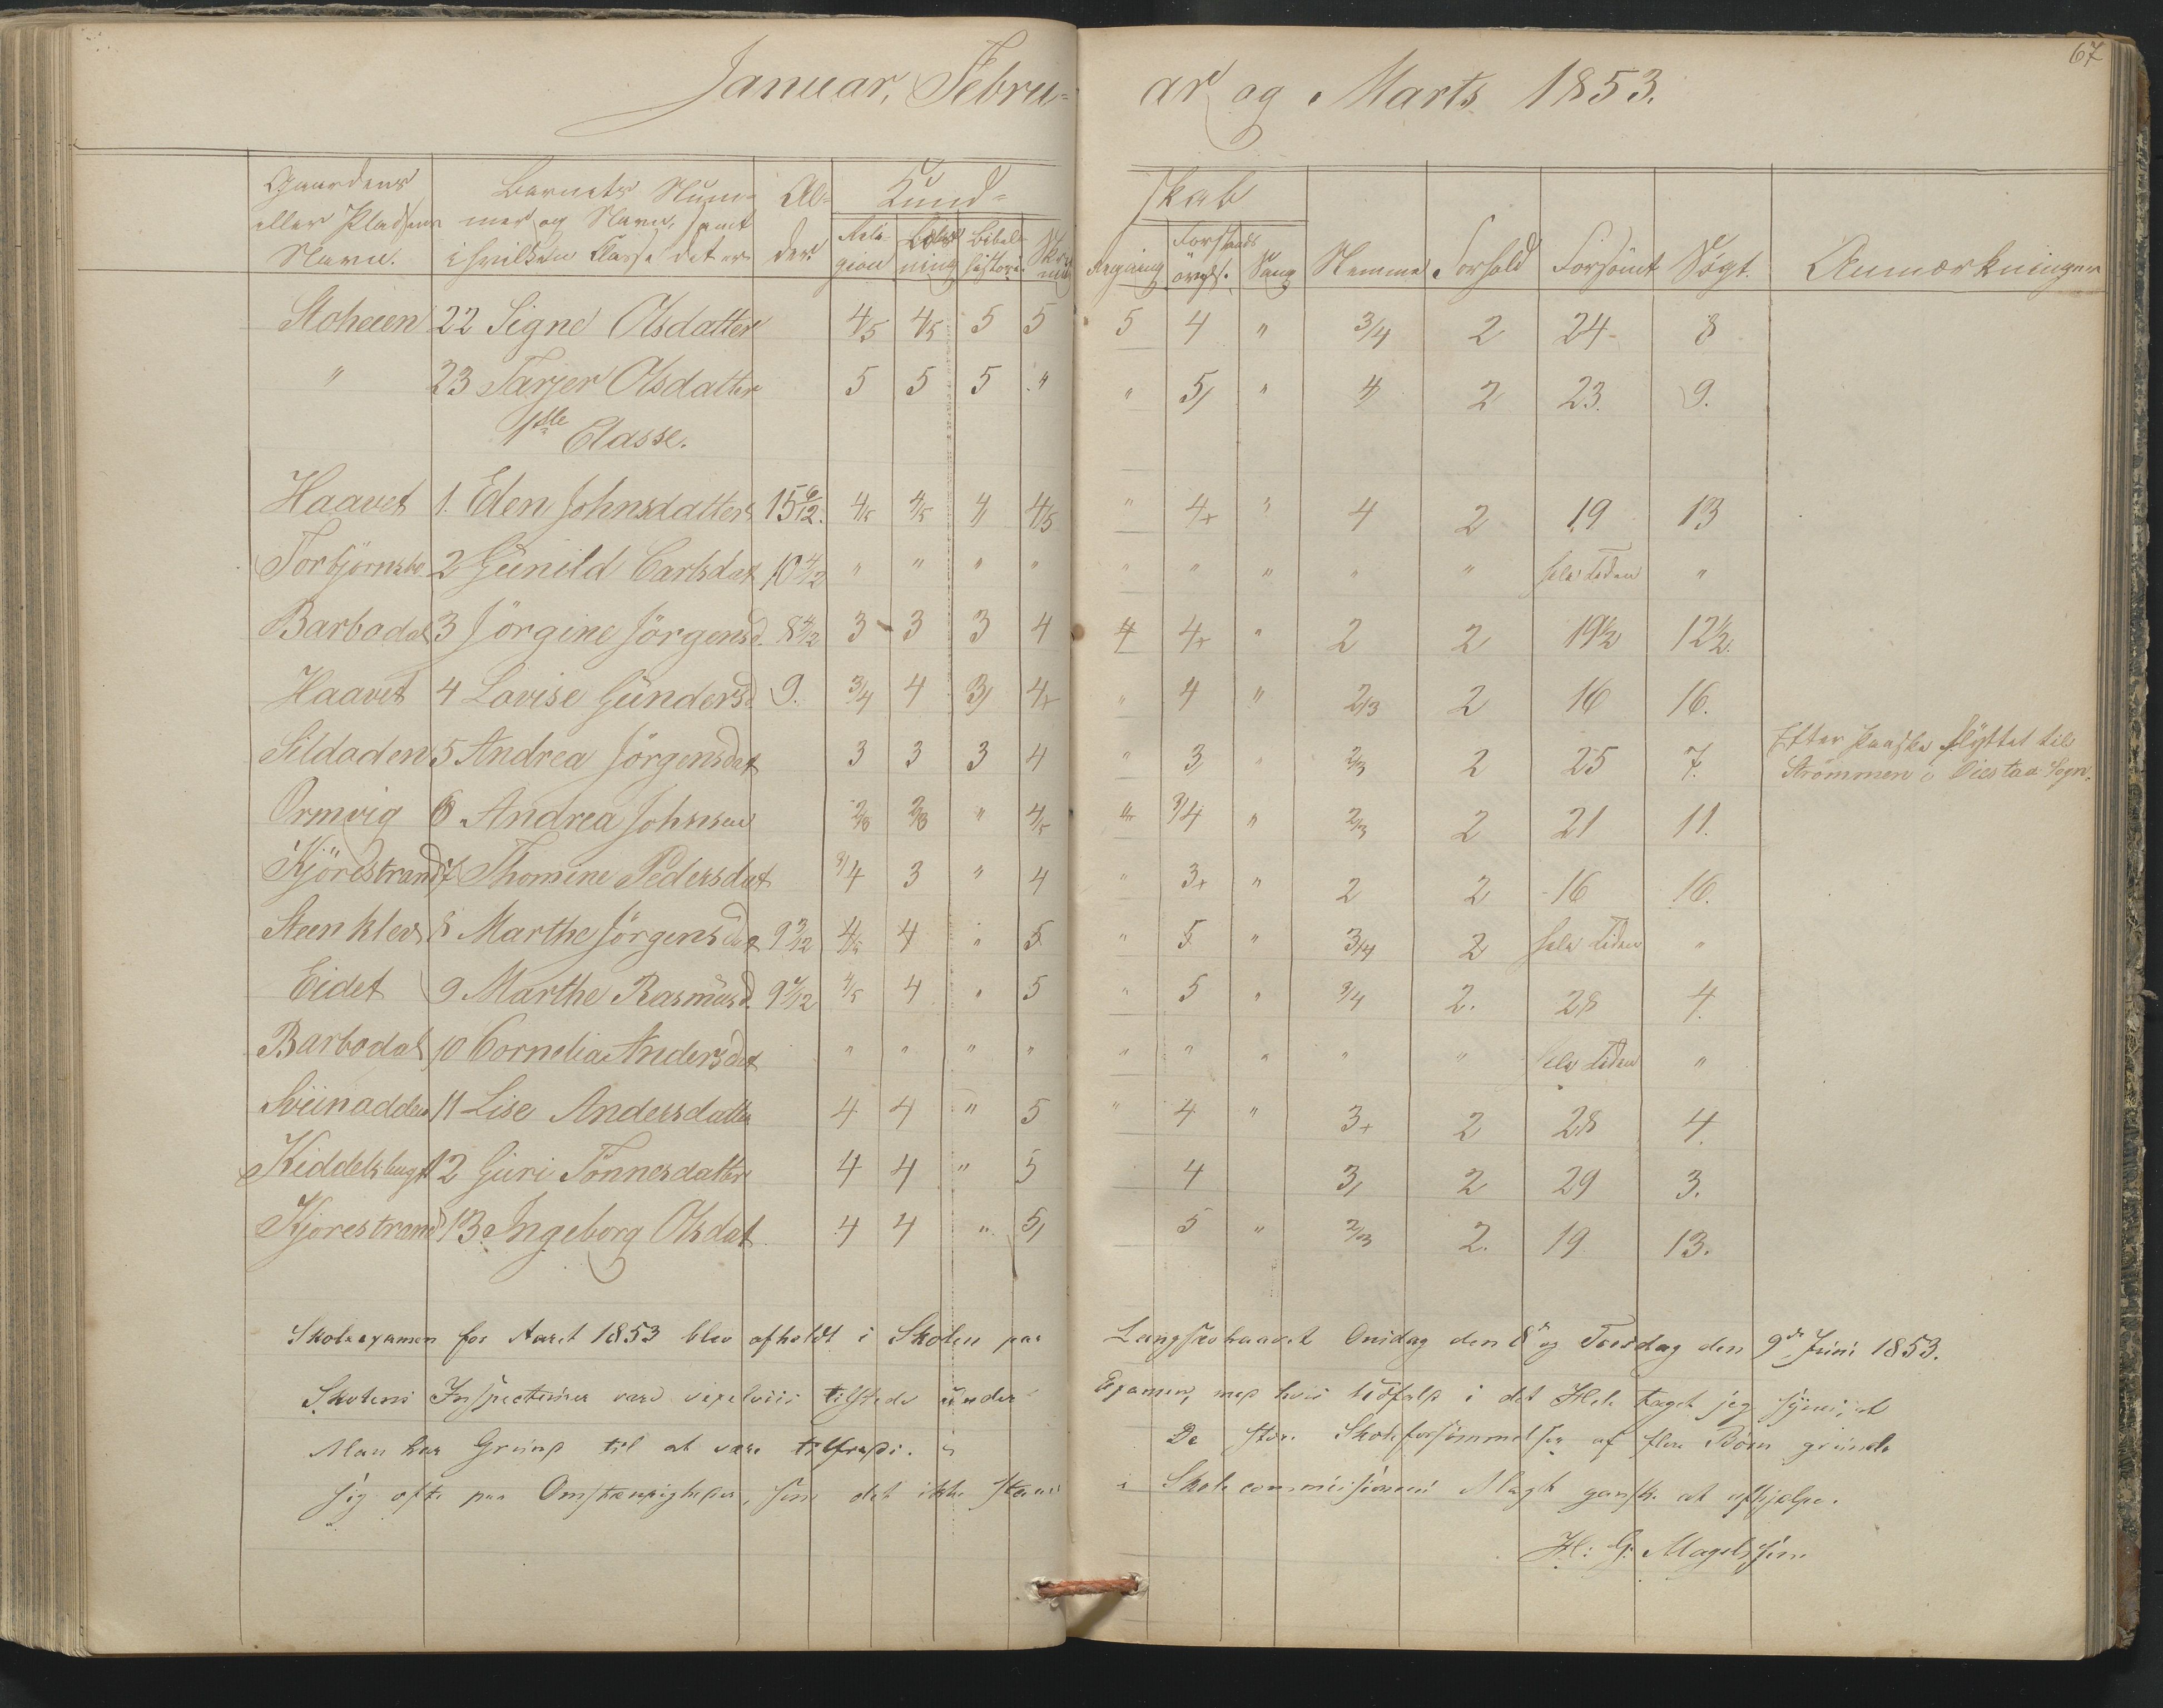 67
Januar, Febru= ar og Marts 1853.
Gaardens eller Pladsens Navn. | Barnets Nummer og Navn, samt i hvilken Classe det er | Alder. | Kundskab: Religion | Læsning | Bibelhistorie | Skrivning | Regning | Forstandsövels. | Sang | Nemme | Forhold | Forsömt | Sögt. | Anmærkninger
Stoheien 22 Signe Olsdatter 4/5 4/5 5 5 5 4 " 3/4 2 24 8
" 23 Tarjer Olsdatter 5 5 5 " " 5/ " 4/ 2 23. 9.
1ste Classe.
Haavet 1. Elen Johnsdatter 15 6/12. 4/5 4/5 4/ 4/5 " 4+ " 4 2 19 13
Torbjörnsbo. 2 Gunild Carlsdat 10 4/12 " " " " " " " " " hele Tiden "
Barbodal 3 Jörgine Jörgensd. 8 4/12 3 3 3 4 4 4+ " 2 2 19½ 12½.
Haavet 4 Lovise Gundersd 9. 3/4 4 3/ 4+ " 4 " 2/3 2 16 16.
Sildoden 5 Andrea Jörgensdat 3 3 3 4 " 3 " 2/3 2 25 7. Efter Paaske flyttet til
Strömmen i Öiestad Sogn.
Ormvig 6 Andrea Johnsen 2/3 2/3 " 4/5 " 3/4 " 2/3 2 21 11.
Kjörestrand 7 Thomine Pedersdat 3/4 3 " 4 " 3+ " 2 2 16 16.
Steenklev 8 Marthe Jörgensdat 9 3/12 4/5 4 " 5 " 5 " 3/4 2 hele Tiden "
Eidet 9 Marthe Rasmusd. 9 7/12 4/5 4 " 5 " 5 " 3/4 2. 28 4.
Barbodal 10 Cornelia Andersdat " " " " " " " " " hele Tiden "
Sviinodden 11 Lise Andersdatter 4 4 " 5 " 4 " 3+ 2 28 4.
Kiddelsbugt 12 Guri Tönnesdatter 4 4 " 5 4 3/ 2 29 3.
Kjorestrand 13. Ingeborg Olsdat 4 4 " 5/ 5 " 2/3 2. 19 13.
Skolexamen for Aaret 1853 blev afholdt i Skolen paa Langsævhaavet Onsdag den 8de og Torsdag den 9de Juni 1853.
Skolens Inspecteurer vare vexelviis tilstede under Examen, med hvis Udfald i det Hele taget jeg synes, at
Man har Grund til at være tilfreds. De store Skoleforsömmelser af flere Börn grunde
sig ofte paa Omstændigheder, som det ikke staaer i Skolecommissionens Magt ganske at afhjælpe.
H: G: Magelssen